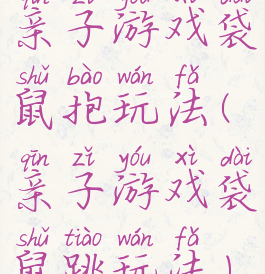 qīn zǐ yóu xì dài
亲子游戏袋
shǔ bào wán fǎ
鼠抱玩法(
qīn zǐ yóu xì dài
亲子游戏袋
shǔ tiào wán fǎ
鼠跳玩法)